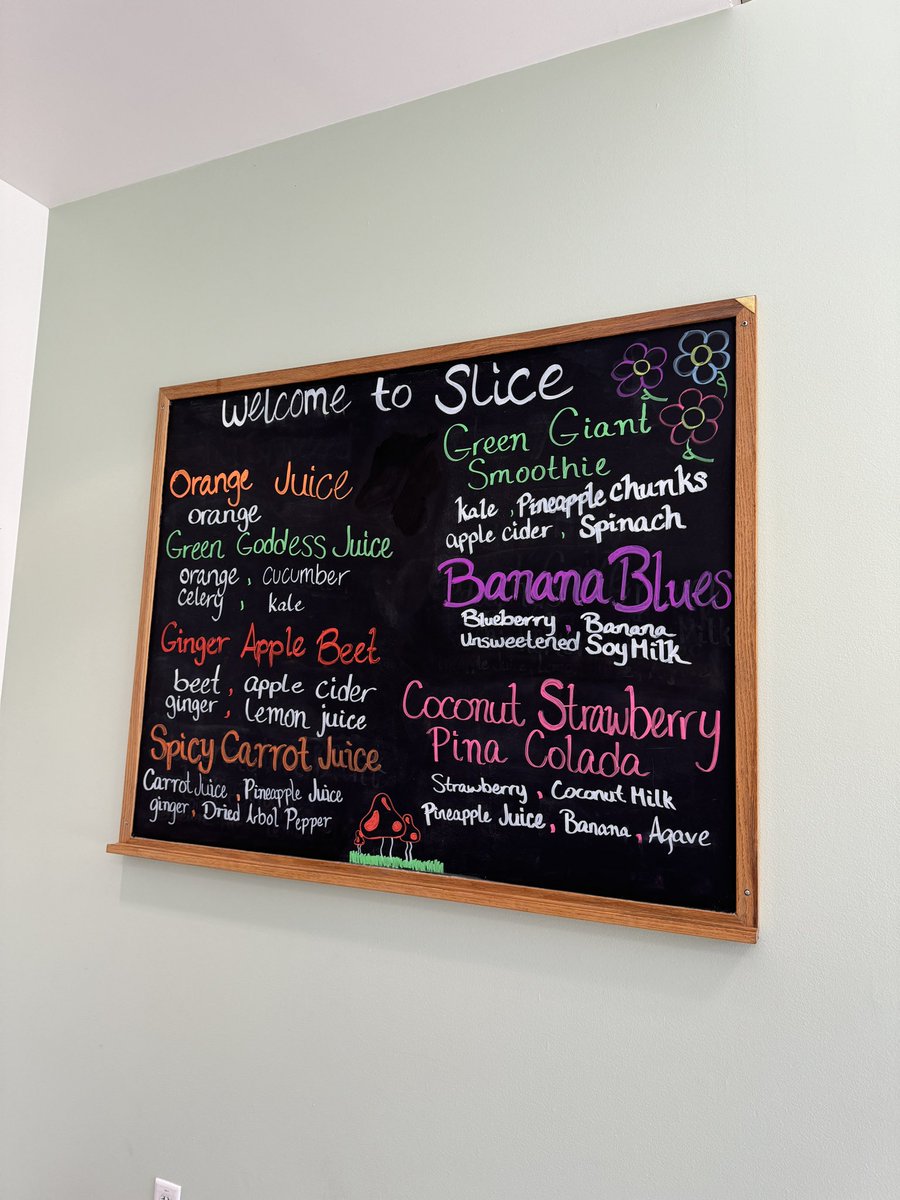 Welcome to Slice
Orange Juice
orange
Green Goddess Juice
orange, cucumber
celery, kale
Ginger Apple Beet
beet, apple cider
ginger, Lemon juice
Spicy Carrot Juice
Carrot Juice, Pineapple Juice
ginger, Dried Arbol Pepper
Green Giant
Smoothie
kale, Pineapple chunks
apple cider, Spinach
Banana Blues
Blueberry, Banana
Unsweetened Soy Milk
Coconut Strawberry
Pina Colada
Strawberry, Coconut Milk
Pineapple Juice, Banana, Agave